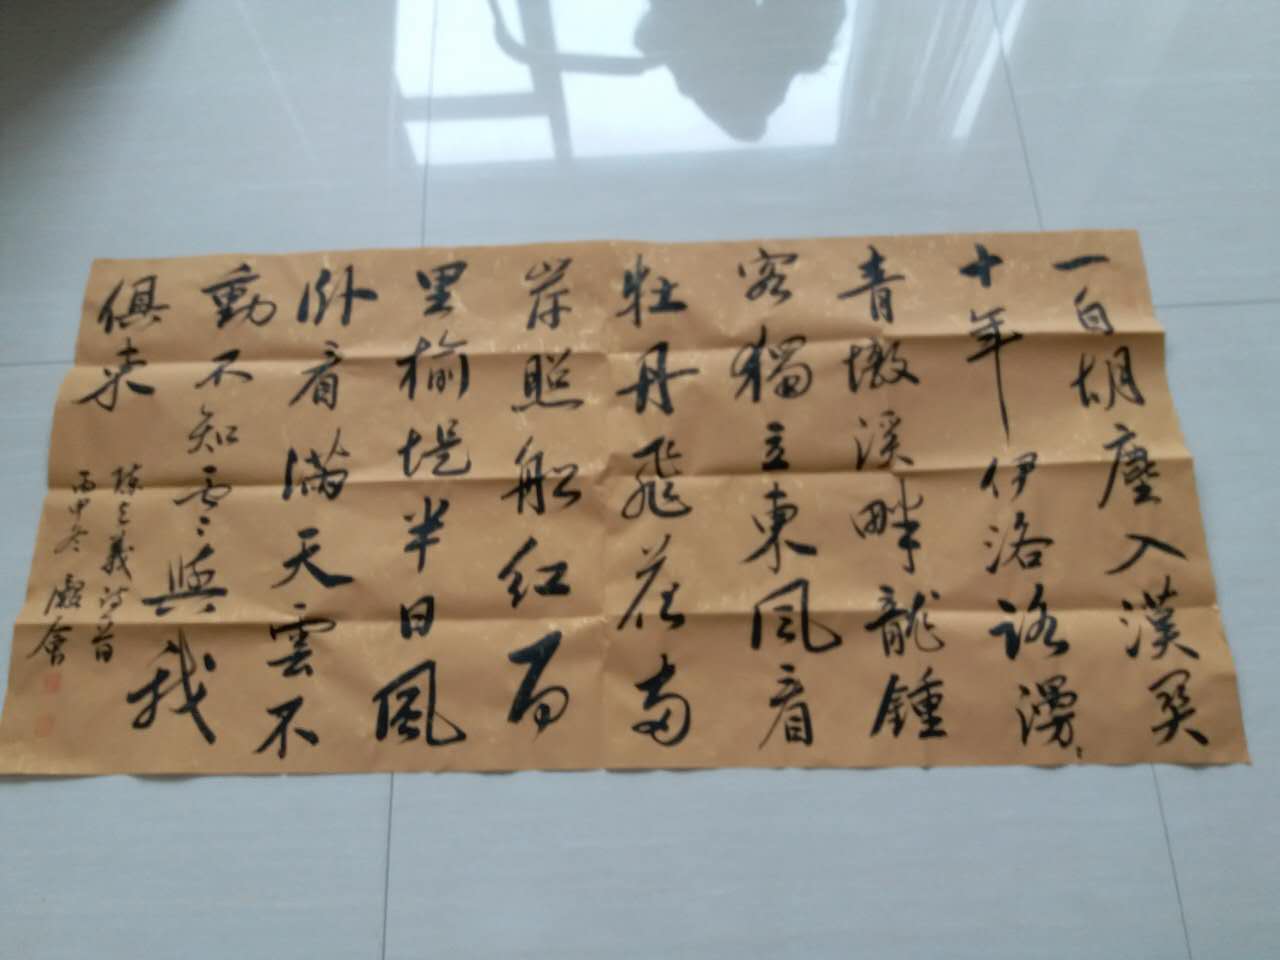 一自胡塵入漢關
十年伊洛路漫〻
青墩溪畔龍鍾
客獨立東風看
牡丹飛花兩
岸照船紅百
里榆堤半日風
卧看滿天雲不
動不知雲〻與我
俱東
陳與義詩二首
丙申冬